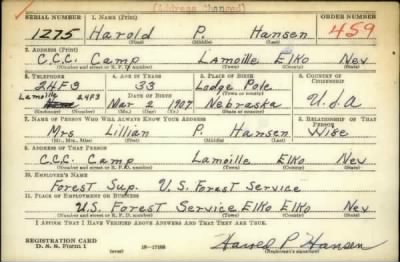 (Address Changed)
SERIAL NUMBER 1. NAME (Print) ORDER NUMBER
1275 Harold P. Hansen 459
(First) (Middle) (Last)
2. ADDRESS (Print)
C.C.C. Camp Lamoille Elko Nev
(Number and street or R. F. D. number) (Town) (County) (State)
3. TELEPHONE 4. AGE IN YEARS 5. PLACE OF BIRTH 6. COUNTRY OF CITIZENSHIP
24F3 33 Lodge Pole
Lamoille 24F3 DATE OF BIRTH (Town or county)
Mar 2 1907 Nebraska U.S.A
(Mo.) (Day) (Yr.) (State or country)
7. NAME OF PERSON WHO WILL ALWAYS KNOW YOUR ADDRESS 8. RELATIONSHIP OF THAT PERSON
Mrs Lillian P. Hansen Wife
(Mr., Mrs., Miss) (First) (Middle) (Last)
9. ADDRESS OF THAT PERSON
C.C.C. Camp Lamoille Elko Nev
(Number and street or R. F. D. number) (Town) (County) (State)
10. EMPLOYER'S NAME
Forest Sup. U.S. Forest Service
11. PLACE OF EMPLOYMENT OR BUSINESS
U.S. Forest Service Elko Elko Nev
(Number and street or R. F. D. number) (Town) (County) (State)
I AFFIRM THAT I HAVE VERIFIED ABOVE ANSWERS AND THAT THEY ARE TRUE.
REGISTRATION CARD
D. S. S. Form 1 (over) 16—17105 Harold P Hansen
(Registrant's signature)